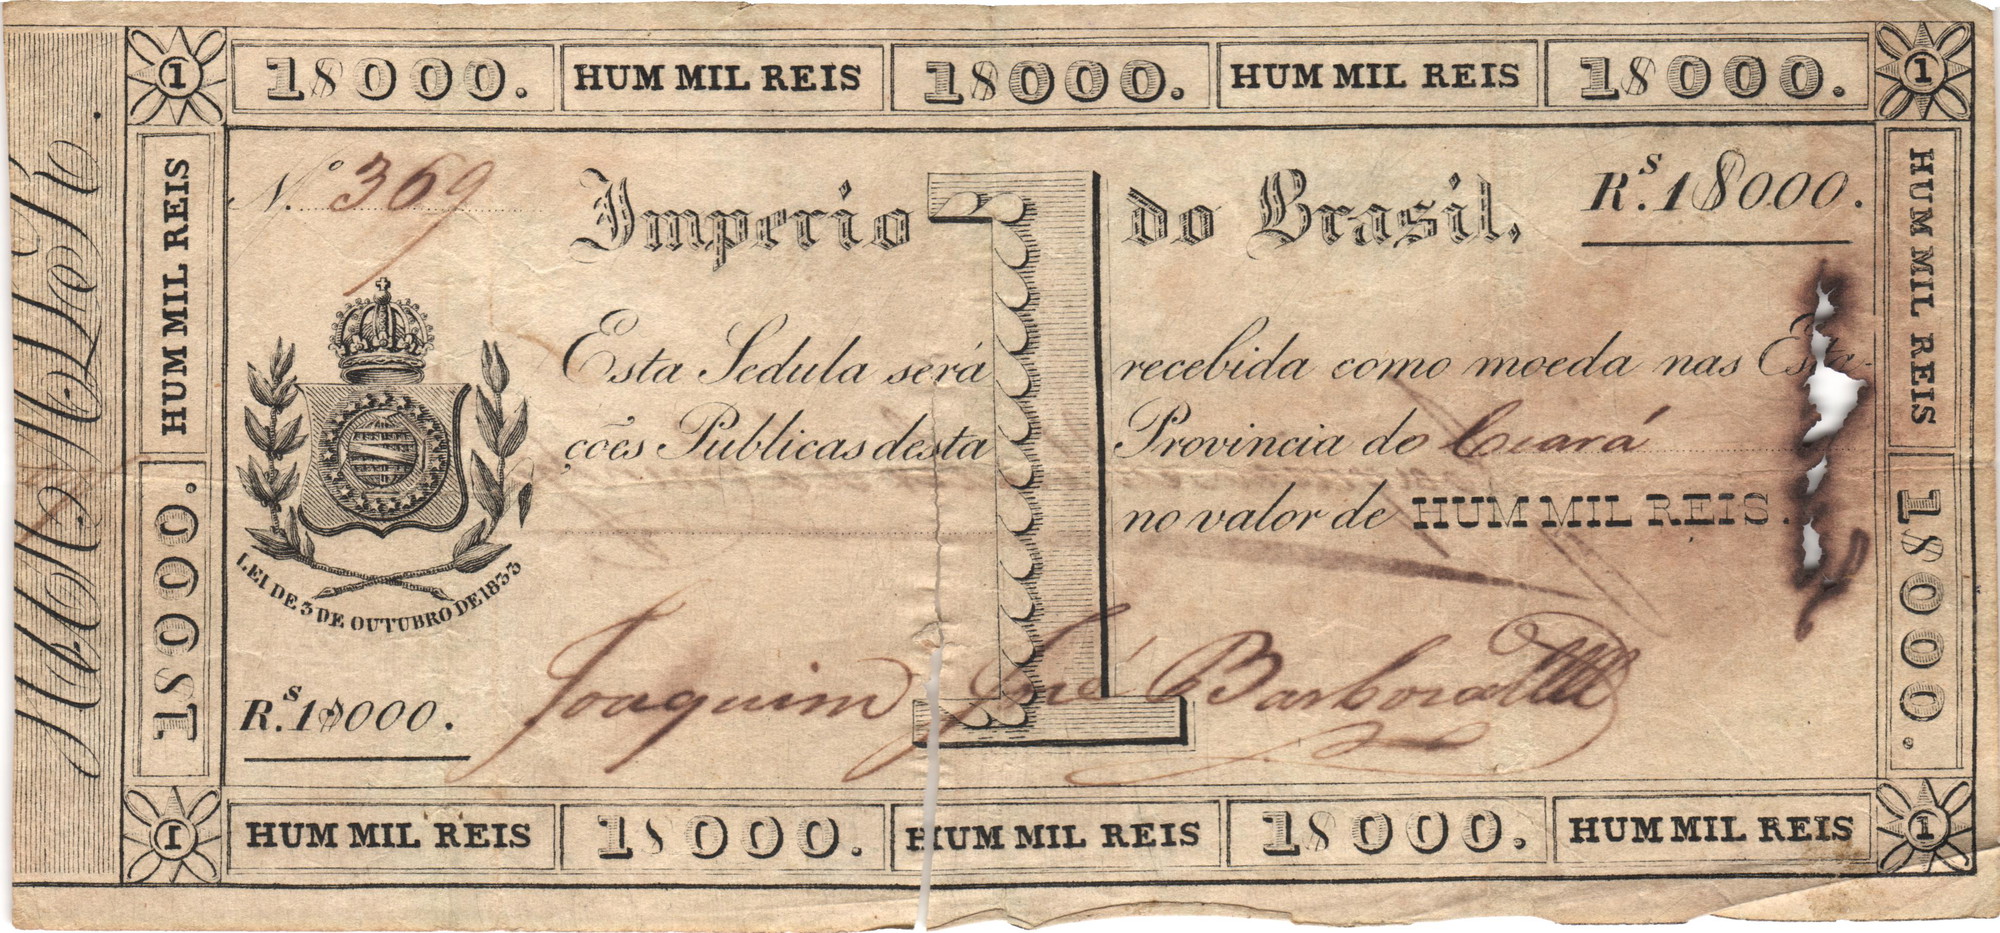 1$000. HUM MIL REIS 1$000. HUM MIL REIS 1$000.
1
1
HUM MIL REIS
1$000.
Nº 369
Imperio 1 do Brasil.
Rs. 1$000.
Esta Sedula será recebida como moeda nas Esta-
ções Publicas desta Provincia do Ceará
no valor de HUM MIL REIS.
LEI DE 3 DE OUTUBRO DE 1833
Joaquim José Barbosa
Rs. 1$000.
HUM MIL REIS
1$000.
1
1
HUM MIL REIS 1$000. HUM MIL REIS 1$000. HUM MIL REIS